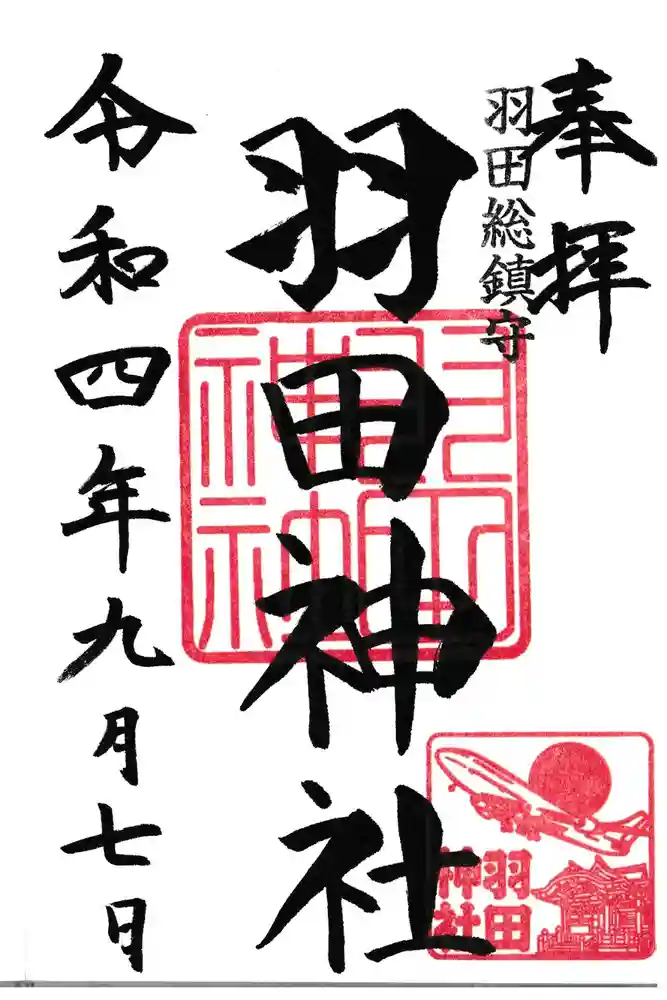 奉拝
羽田総鎮守
羽田神社
令和四年九月七日
羽田
神社